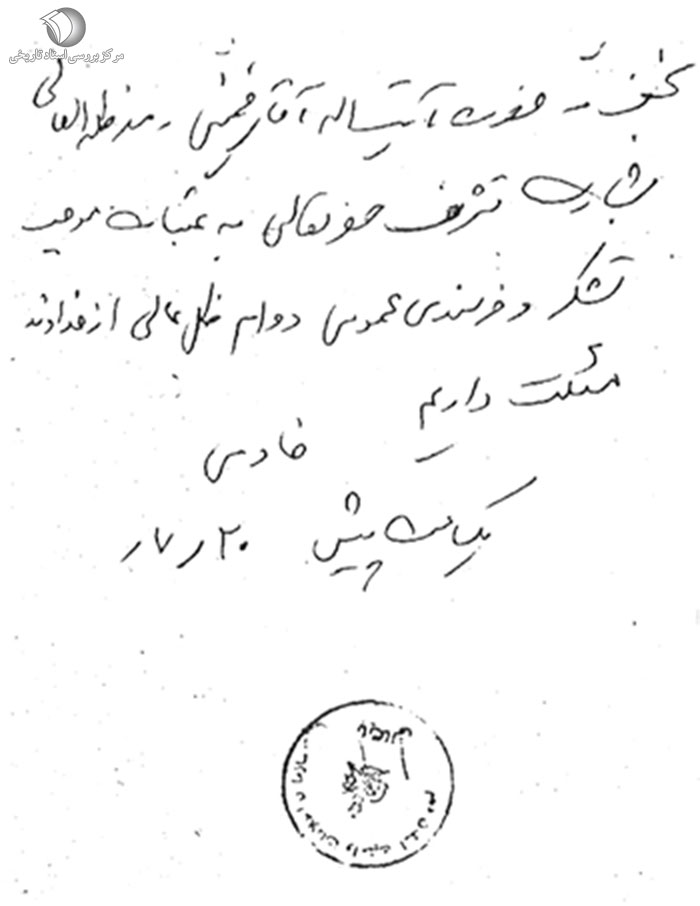 مرکز بررسی اسناد تاریخی
نجف - حضرت آیت‌اله آقای خمینی مدظله‌العالی
بشارت تشرف حضرتعالی به عتبات موجب
تشکر و خرسندی عموم دوام ظل عالی از خداوند
مسئلت داریم
خادمی
یک ساعت پیش ۲۰ر۷ر